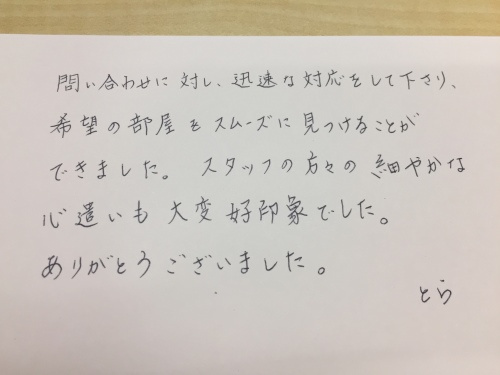 問い合わせに対し、迅速な対応をして下さり、
希望の部屋をスムーズに見つけることが
できました。 スタッフの方々の細やかな
心遣いも大変好印象でした。
ありがとうございました。
とら